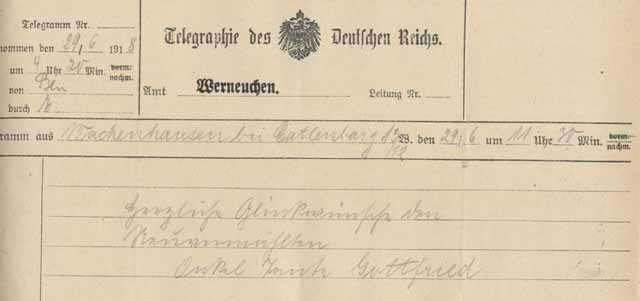 Telegramm Nr.
nommen den 29/6 1918
um 4 Uhr 20 Min. vorm. nachm.
von Bln
durch
Telegraphie des Deutschen Reichs.
Amt Werneuchen. Leitung Nr.
ramm aus Wachenhausen bei Catlenburg 12/12 W. den 29/6 um 11 Uhr 30 Min. vorm. nachm.
Herzliche Glückwünsche den
Neuvermählten
Onkel Tante Gottfried